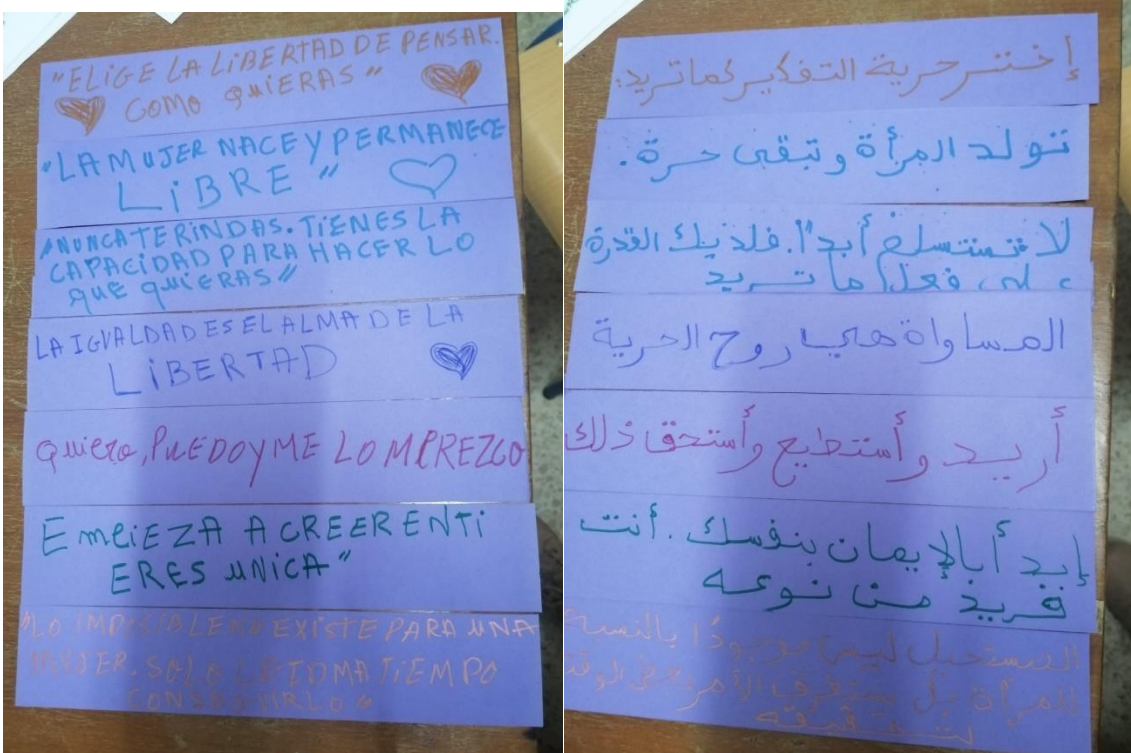 "ELIGE LA LIBERTAD DE PENSAR.
COMO QUIERAS"
"LA MUJER NACE Y PERMANECE
LIBRE"
"NUNCA TE RINDAS. TIENES LA
CAPACIDAD PARA HACER LO
QUE QUIERAS"
LA IGUALDAD ES EL ALMA DE LA
LIBERTAD
Quiero, PUEDO Y ME LO MEREZCO
EMPIEZA A CREER EN TI
ERES UNICA"
"LO IMPOSIBLE NO EXISTE PARA UNA
MUJER. SOLO LE TOMA TIEMPO
CONSEGUIRLO"
إختر حرية التفكير كما تريد:
تولد المرأة وتبقى حرة.
لا تستسلم أبدًا. فلديك القدرة
على فعل ما تريد
المساواة هي روح الحرية
أريد وأستطيع وأستحق ذلك
إبدأ بالإيمان بنفسك. أنت
فريد من نوعه
المستحيل ليس موجودًا بالنسبة
للمرأة بل يستغرق الأمر